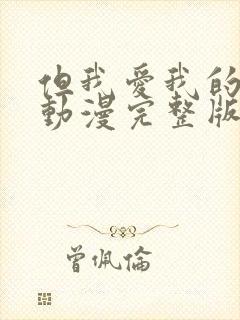 但我愛我的
動漫完整版
曾佩倫